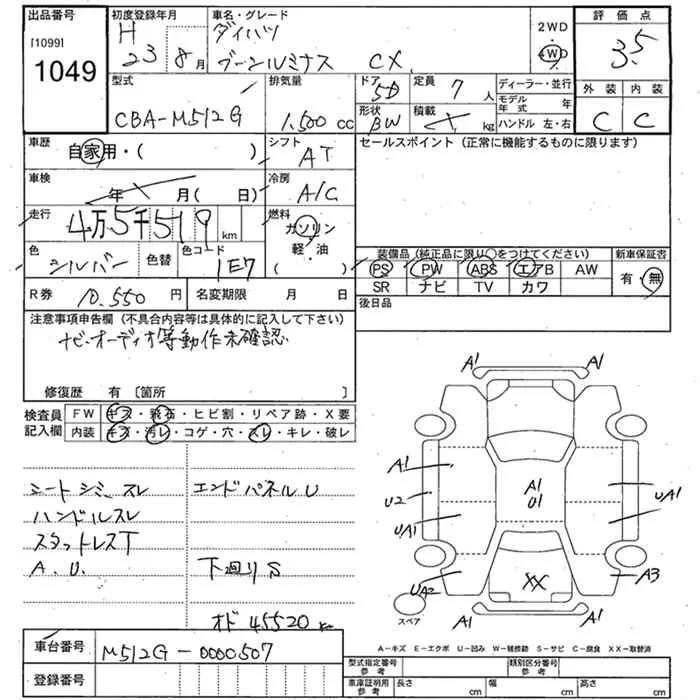 出品番号
[1099]
1049
初度登録年月
H 23 8月
車名・グレード
ダイハツ
ブーンルミナス CX
2WD
4WD
評価点
3.5
外装 内装
C C
型式
CBA-M512G
排気量
1,500 cc
ドア
5D
形状
BW
定員 7 人
積載 kg
ディーラー・並行
モデル年式 年
ハンドル 左・右
車歴
自家用・( )
車検
年 月( 日)
走行
4万5千519 km
色
シルバー
色替
色コード
1E7
シフト
AT
冷房
A/C
燃料
ガソリン
軽・油
( )
セールスポイント (正常に機能するものに限ります)
装備品 (純正品に限り○をつけてください)
PS PW ABS エアB AW
SR ナビ TV カワ
新車保証書
有・無
後日品
R券 10,550 円
名変期限 月 日
注意事項申告欄 (不具合内容等は具体的に記入して下さい)
ナビ・オーディオ等動作未確認
修復歴 有 〔箇所 〕
検査員記入欄
FW キズ・飛石・ヒビ割・リペア跡・X要
内装 キズ・汚レ・コゲ・穴・スレ・キレ・破レ
シートシミ、スレ
ハンドルスレ
スタットレスT
A.U.
エンドパネルU
下廻りS
オド45520km
A1 A1
A1
U2
UA1
UA2
A1
U1
UA1
A3
XX
A1 A1
スペア
A-キズ E-エクボ U-凹み W-補修跡 S-サビ C-腐食 XX-取替済
車台番号
M512G-0000507
登録番号
型式指定番号 参考
類別区分番号 参考
車庫証明用 参考
長さ cm 幅 cm 高さ cm